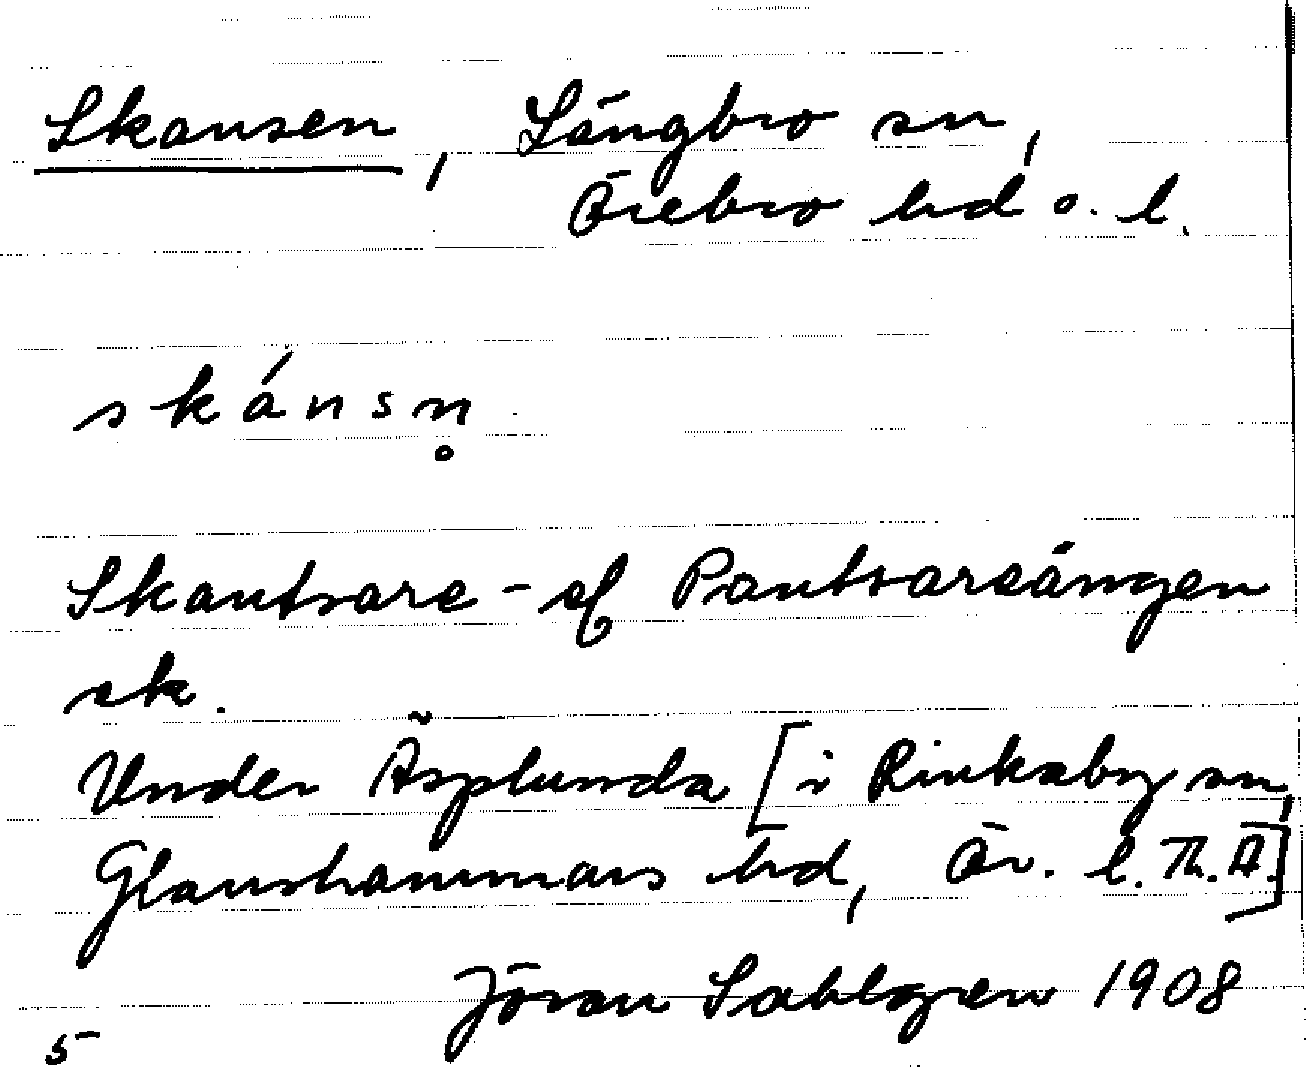 Skansen, Längbro sn,
Örebro hd o. l.
skánsn̥
Skantsare - cf Pantsareängen
sk.
Under Äsplunda [i Rinkaby sn,
Glanshammars hd, Ör. l. Th. A.]
Jöran Sahlgren 1908
5